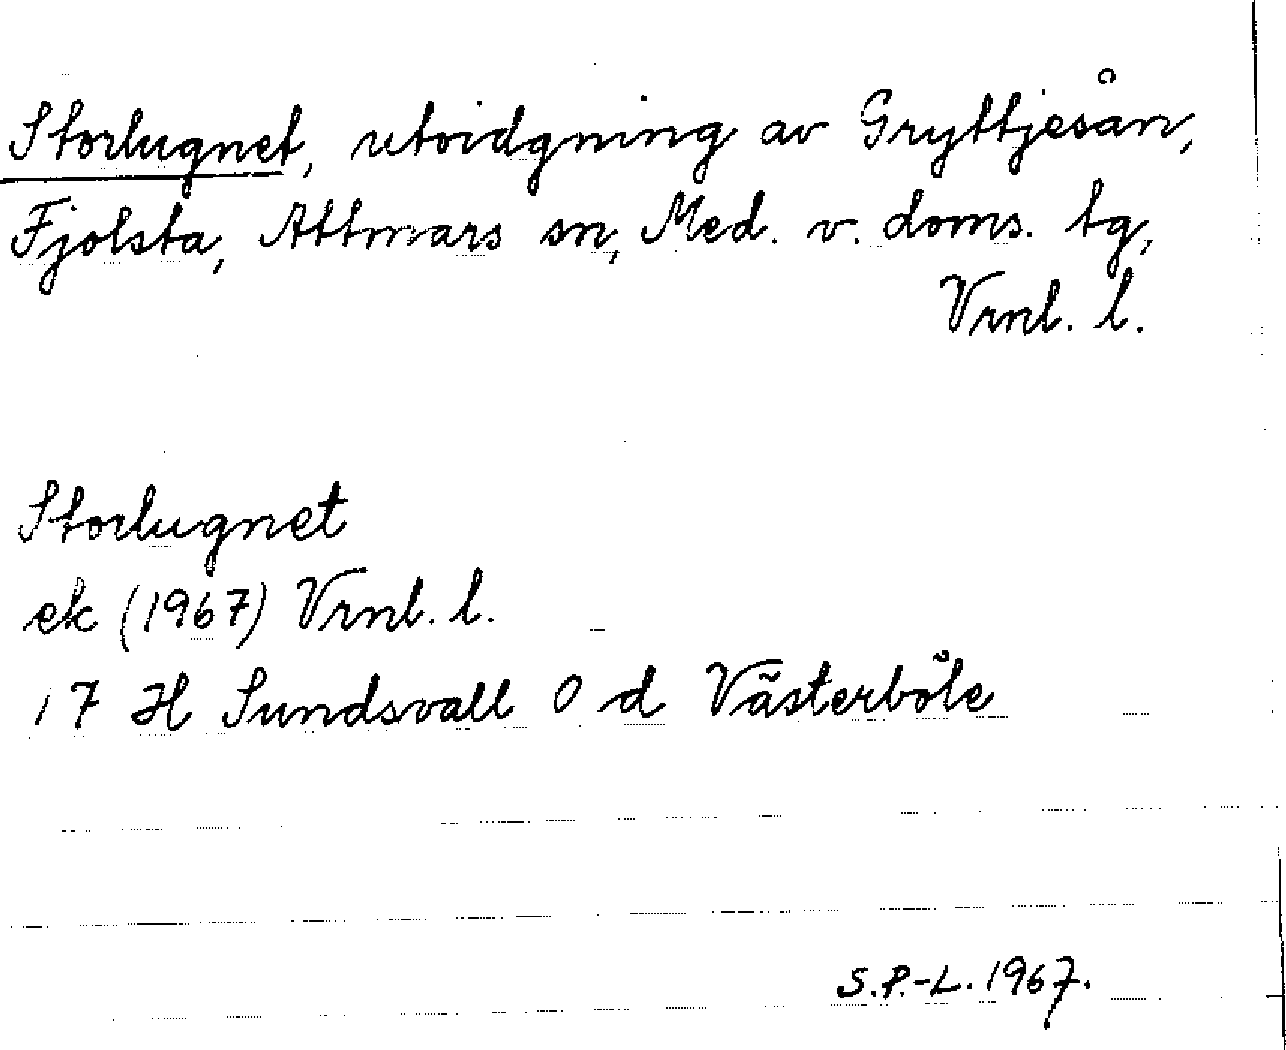 Storlugnet, utvidgning av Gryttjesån,
Fjolsta, Attmars sn, Med. v. doms. tg,
Vrnl. l.
Storlugnet
ek (1967) Vrnl. l.
17 H Sundsvall 0 d Västerböle
S.P.-L. 1967.